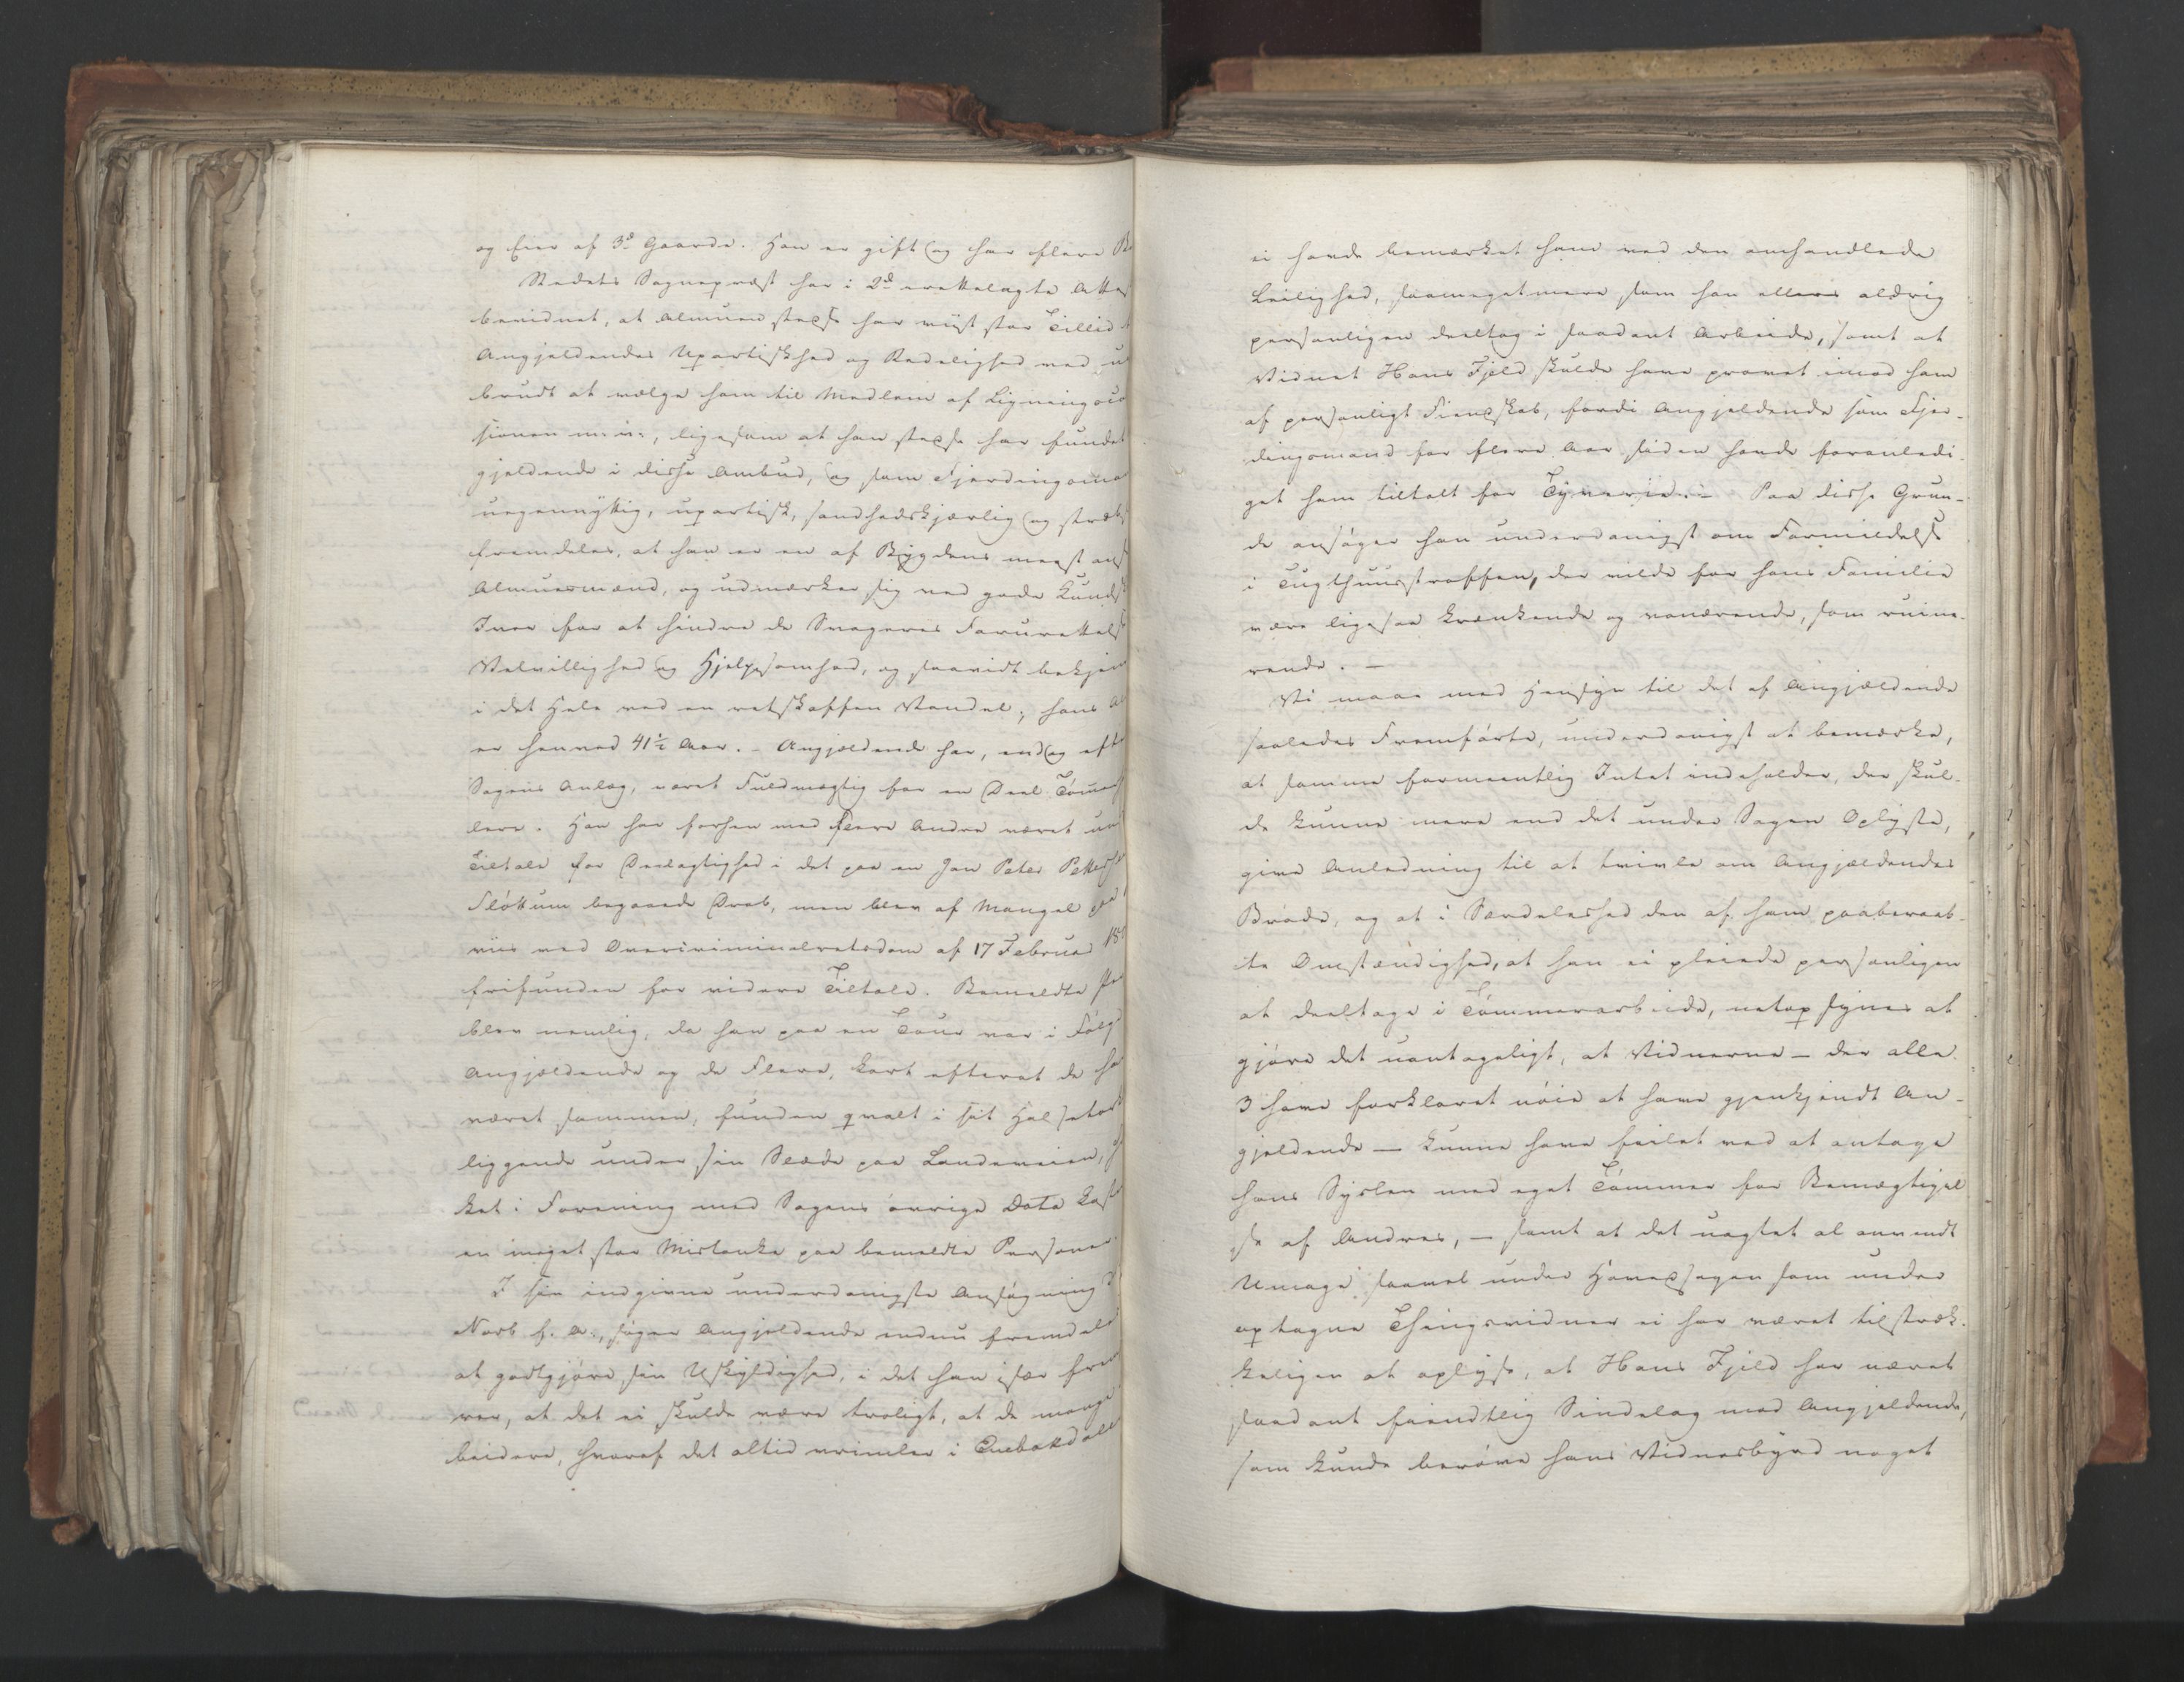 og Eier af 3de Gaarde. Han er gift og har flere
Stedets Sognepræst har i 2de erettelagte Atte
bevidnet, at Almuen stedse har viist stor Tillid
Angjeldendes Upartiskhed og Redelighed ved
brudt at vælge ham til Medlem af Ligningsco
sionen m: v:, ligesom at han stedse har fundet
gjeldende i disse Ombud, og som Fjerdingsma
uegennyttig, upartisk, sandhedskjærlig og stræb
fremdeles, at han er en af Bygdens meest ans
Almuesmænd, og udmærker sig ved gode Kunds
Iver for at hindre de Svageres Forurettelse
Velvillighed og Hjelpsomhed, og saavidt bekjen
i det Hele ved en retskaffen Vandel; hans Al
er henved 41½ Aar. - Angjældende har, endog efte
Sagens Anlæg, været Fuldmægtig for en Deel Tømmer
lere. Han har forhen med Flere Andre været un
Tiltale for Deelagtighed i det paa en Jon Peter Petters
Fløkum begaaede Drab, men blev af Mangel paa
viis ved Overcriminalretsdom af 17 Februar 18
frifunden for videre Tiltale. Bemeldte
blev nemlig, da han paa en Tour var i Følge
Angjældende og de Flere, kort efterat de ha
været sammen, funden qvalt i sit Halstørk
liggende under sin Slæde paa Landeveien,
ket i Forening med Sagens øvrige Data kaste
en meget stor Mistanke paa bemeldte Personer.
I sin indgivne underdanigste Ansøgning
Novb f. A., søger Angjeldende endnu fremdeles
at godtgjøre sin Uskyldighed, i det han især frem
rer, at det ei skulde være troligt, at de mange
beidere, hvoraf det altid vrimler i Enebakdale
ei havde bemærket ham ved den omhandlede
Leilighed, saameget mere som han ellers aldrig
personligen deeltog i saadant Arbeide, samt at
Vidnet Hans Fjeld skulde have prøvet imod ham
af personligt Fiendskab, fordi Angjeldende som Fjer-
dingsmand for flere Aar siden havde foranledi-
get ham tiltalt for Tyverie. - Paa disse Grun-
de ansøger han underdanigst om Formildelse
i Tugthuusstraffen, der vilde for hans Familie
være ligesaa krænkende og vanærende, som ruine-
rende. -
Vi maae med Hensyn til det af Angjældende
saaledes Fremførte, underdanigst at bemærke,
at samme formeentlig Intet indeholder, der skul-
de kunne mere end det under Sagen Oplyste,
give Anledning til at tvivle om Angjældendes
Brøde, og at i Særdeleshed den af ham paaberaab-
te Omstændighed, at han ei pleiede personligen
at deeltage i Tømmerarbeide, netop synes at
gjøre det uantageligt, at Vidnerne - der alle
3 have forklaret nøie at have gjenkjendt An-
gjeldende - kunne have feilet ved at antage
hans Syslen med eget Tømmer for Bemægtigel
se af Andres, - samt at det uagtet al anvendt
Umage saavel under Hovedsagen som under
optagne Thingsvidner ei har været tilstræk-
keligen at oplyse, at Hans Fjeld har næret
saadant fiendtlig Sindelag mod Angjeldende,
som kunde berøve hans Vidnesbyrd noget